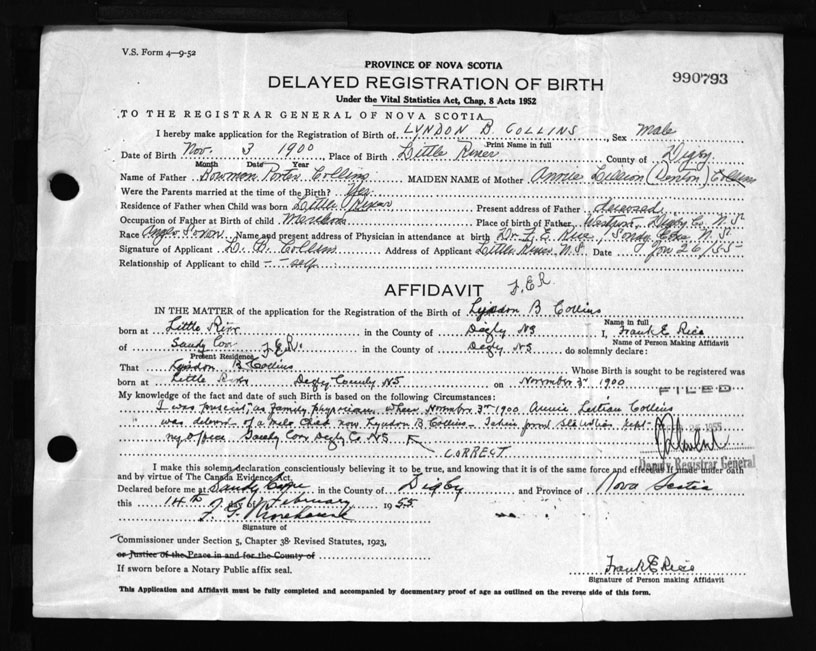 V.S. Form 4—9-52
PROVINCE OF NOVA SCOTIA
DELAYED REGISTRATION OF BIRTH
990793
Under the Vital Statistics Act, Chap. 8 Acts 1952
TO THE REGISTRAR GENERAL OF NOVA SCOTIA
I hereby make application for the Registration of Birth of LYNDON B COLLINS Sex Male
Print Name in full
Date of Birth Nov. 3 1900 Place of Birth Little River County of Digby
Month Date Year
Name of Father Bowman Porter Collins MAIDEN NAME of Mother Annie Lillian (Denton) Collins
Were the Parents married at the time of the Birth? Yes
Residence of Father when Child was born Little River Present address of Father deceased
Occupation of Father at Birth of child Place of birth of Father Westport, Digby Co. N.S.
Race Anglo Saxon Name and present address of Physician in attendance at birth Dr. F. E. Rice, Sandy Cove, N.S.
Signature of Applicant L. B. Collins Address of Applicant Little River N.S. Date Jan 26/55
Relationship of Applicant to child - - self
AFFIDAVIT F.E.R
IN THE MATTER of the application for the Registration of the Birth of Lyndon B Collins
Name in full
born at Little River in the County of Digby NS I, Frank E. Rice
Name of Person Making Affidavit
of Sandy Cove F.E.R. in the County of Digby NS do solemnly declare:
Present Residence
That Lyndon B Collins Whose Birth is sought to be registered was
born at Little River Digby County NS on November 3rd 1900
FILED
My knowledge of the fact and date of such Birth is based on the following Circumstances:
I was present, as family physician when November 3rd 1900 Annie Lillian Collins
was delivered of a male child now Lyndon B Collins - Taken from
1955
my office Sandy Cove Digby Co NS
CORRECT
Deputy Registrar General
I make this solemn declaration conscientiously believing it to be true, and knowing that it is of the same force and effect as if made under oath
and by virtue of The Canada Evidence Act.
Declared before me at Sandy Cove in the County of Digby and Province of Nova Scotia
this 14th day of February 1955
F. F. Morehouse
Signature of
Commissioner under Section 5, Chapter 38 Revised Statutes, 1923,
or Justice of the Peace in and for the County of
If sworn before a Notary Public affix seal.
Frank E Rice
Signature of Person making Affidavit
This Application and Affidavit must be fully completed and accompanied by documentary proof of age as outlined on the reverse side of this form.